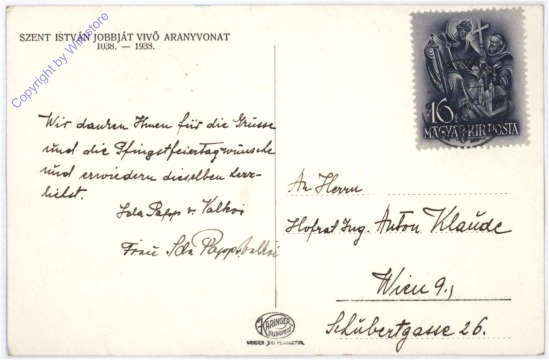 SZENT ISTVÁN JOBBJÁT VIVŐ ARANYVONAT
1038. — 1938.
Copyright by Wienstore
16 f
MAGYAR·KIR·POSTA
Wir danken Ihnen für die Grüsse
und die Pfingstfeiertagwünsche
und erwiedern dieselben herz-
lichst.
Ida Papp v.
Frau Ida Papp
An Herrn
Hofrat Ing. Anton Klaude
Wien 9.,
Schubertgasse 26.
KARINGER
BUDAPEST